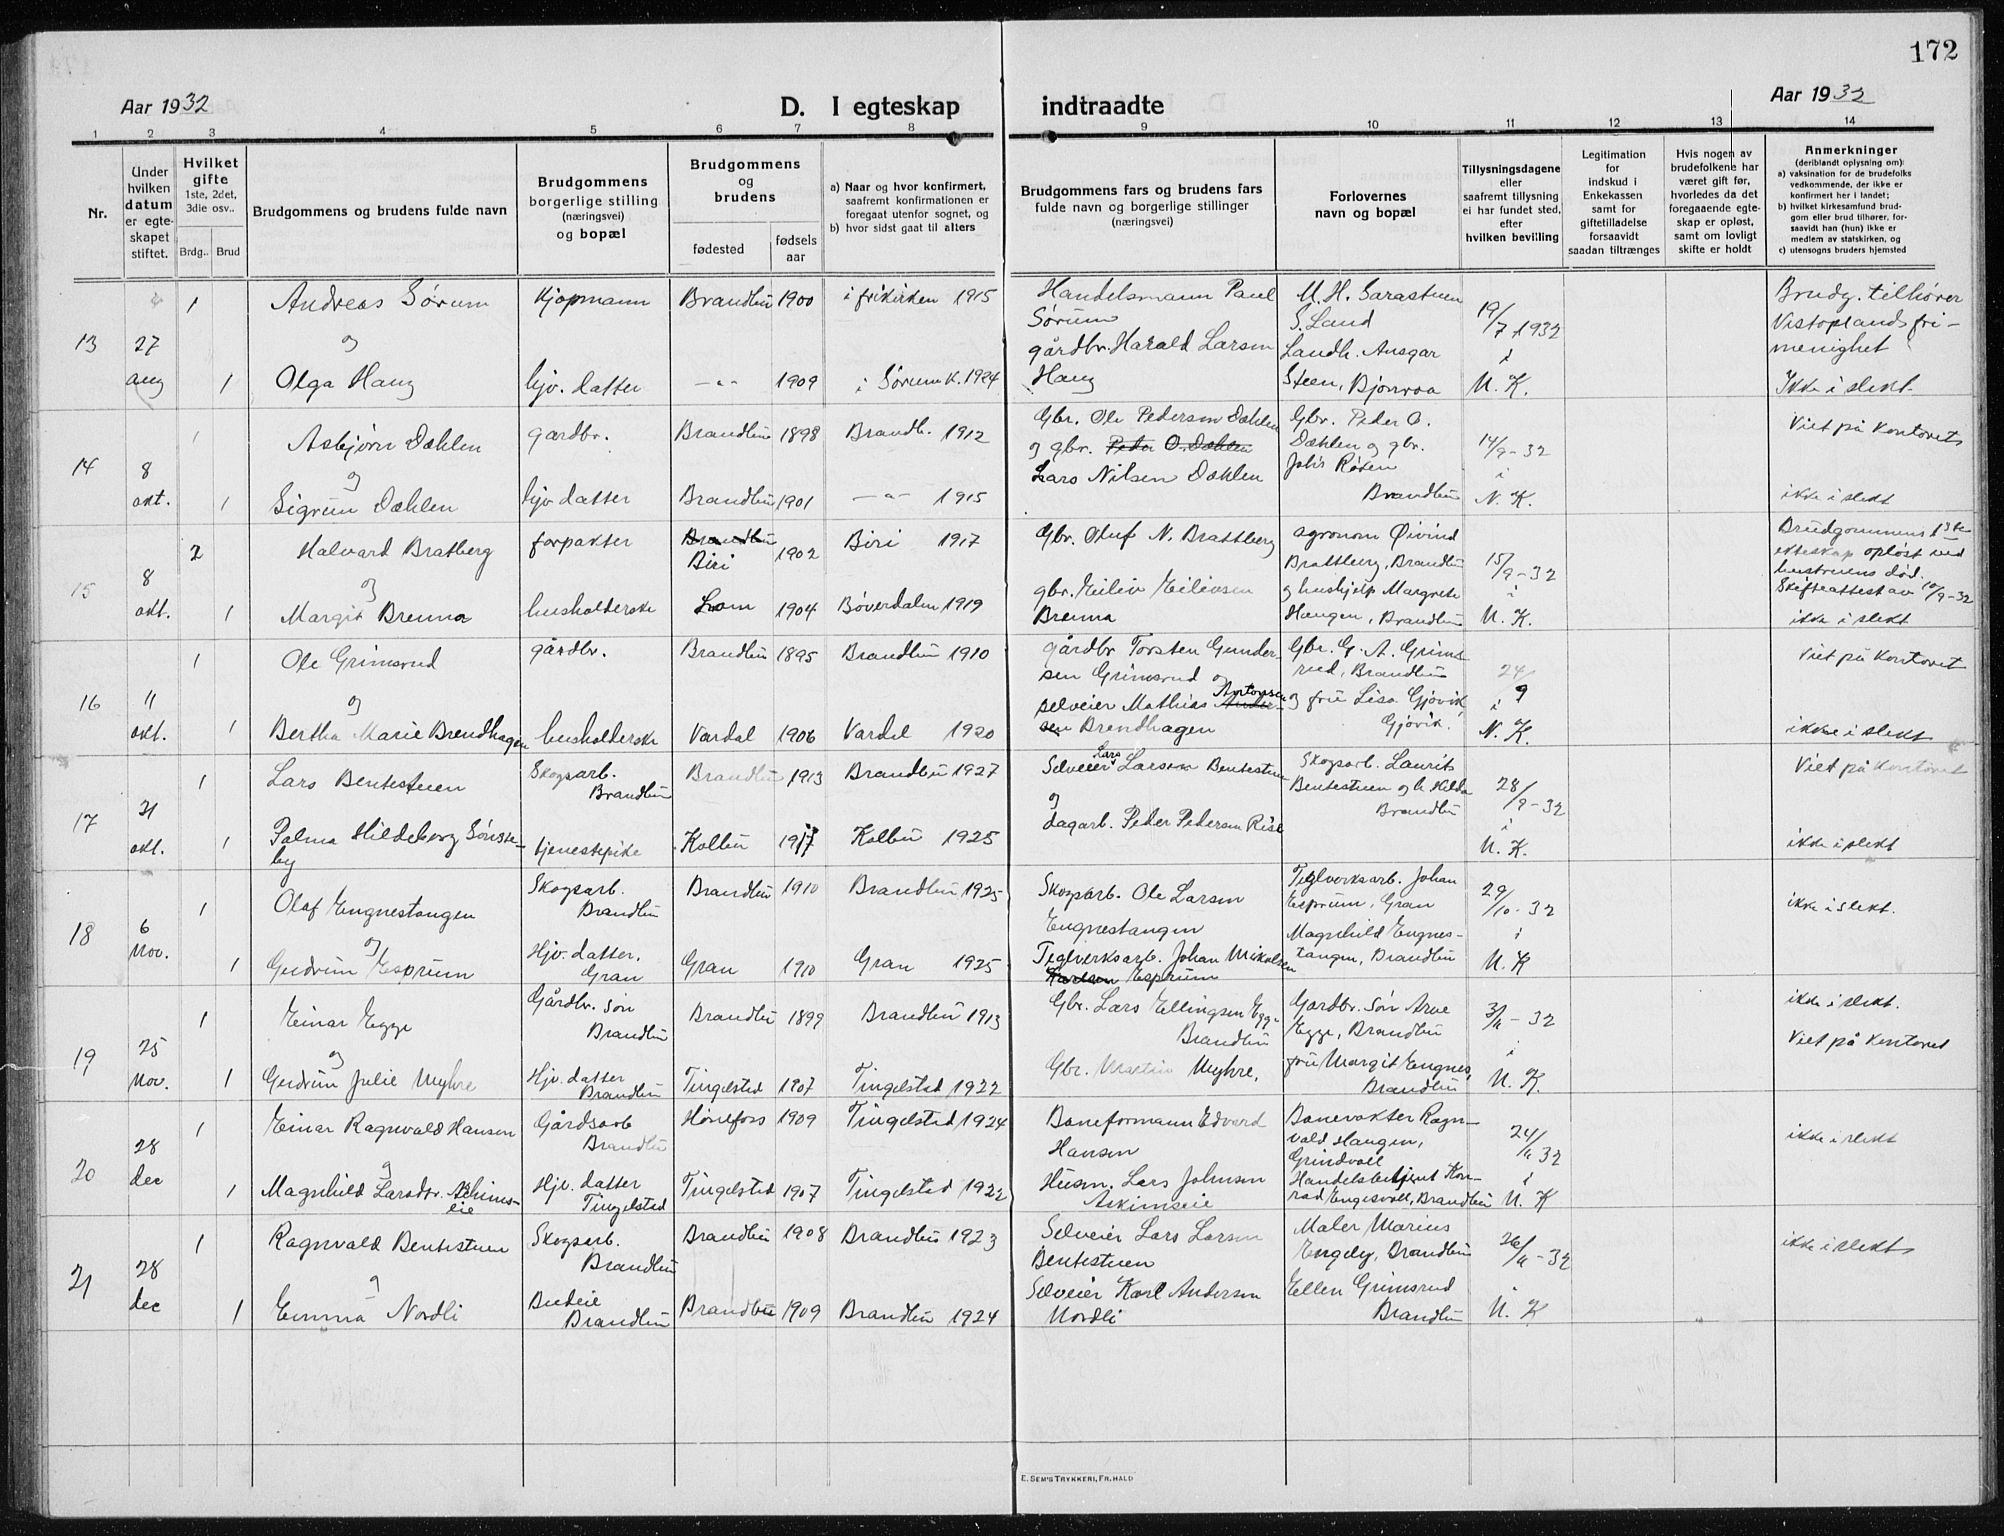 172
Aar 1932
D. I egteskap indtraadte
Aar 1932
1 2 3 4 5 6 7 8 9 10 11 12 13 14
Nr.
Under hvilken datum er egte-skapet stiftet.
Hvilket gifte
1ste, 2det, 3die osv..
Brdg.. Brud
Brudgommens og brudens fulde navn
Brudgommens borgerlige stilling
(næringsvei)
og bopæl
Brudgommens og brudens
fødested
fødsels aar
a) Naar og hvor konfirmert, saafremt konfirmationen er foregaat utenfor sognet, og
b) hvor sidst gaat til alters
Brudgommens fars og brudens fars
fulde navn og borgerlige stillinger
(næringsvei)
Forlovernes
navn og bopæl
Tillysningsdagene
eller
saafremt tillysning
ei har fundet sted,
efter
hvilken bevilling
Legitimation
for
indskud i
Enkekassen
samt for
giftetilladelse
forsaavidt
saadan tiltrænges
Hvis nogen av
brudefolkene har
været gift før,
hvorledes da det
foregaaende egte-
skap er opløst,
samt om lovligt
skifte er holdt
Anmerkninger
(deriblandt oplysning om):
a) vaksination for de brudefolks
vedkommende, der ikke er
konfirmert her i landet;
b) hvilket kirkesamfund brud-
gom eller brud tilhører, for-
saavidt han (hun) ikke er
medlem av statskirken, og
c) utensogns bruders hjemsted
13 27 aug
1 Andreas Sørum Kjøpmann Brandbu 1900 i frikirken 1915
og
1 Olga Haug hjv. datter -"- 1909 i Sørum k. 1924
Handelsmann Paul
Sørum
gårdbr. Harald Larsen
Haug
S. Land
Landh. Ansgar
Steen, Bjonroa
19/7 1932
i
N. K.
Brudg. tilhører
Vestoplands fri-
menighet
Ikke i slekt.
14 8 okt.
1 Asbjørn Dæhlen gardbr. Brandbu 1898 Brandb. 1912
og
1 Sigrun Dæhlen hjv. datter Brandbu 1901 -"- 1915
Gbr. Ole Pedersen Dæhlen
og gbr. Peder O. Dæhlen
Lars Nilsen Dæhlen
Gbr. Peder O.
Dæhlen og gbr.
Johs Røken
Brandbu
14/9-32
i
N. K.
Viet på kontoret
ikke i slekt
15 8 okt.
2 Halvard Bratberg forpakter Brandbu
Biri 1902 Biri 1917
og
1 Margit Brenna husholderske Lom 1904 Bøverdalen 1919
Gbr. Oluf N. Brattberg
gbr. Eiliv Eilivsen
Brenna
agronom Øivind
Brattberg, Brandbu
og hushjelp Margrete
Haugen, Brandbu
15/9-32
i
N. K.
Brudgommens 1ste
ekteskap opløst ved
hustruens død.
Skifteattest av 10/9-32
ikke i slekt
16 11 okt.
1 Ole Grimsrud gårdbr. Brandbu 1895 Brandbu 1910
og
1 Bertha Marie Brendhagen husholderske Vardal 1906 Vardal 1920
gårdbr Torsten Gunder-
sen Grimsrud og
selveier Mathias Antonsen
Brendhagen
Gbr. G. A. Grims-
rud, Brandbu
og fru Lisa Gjøvik,
Gjøvik.
24/9
i
N. K.
Viet på Kontoret
ikke i slekt
17 21 okt.
1 Lars Bentestuen Skogsarb.
Brandbu Brandbu 1913 Brandbu 1927
1 Palma Hildeborg Sønste-
by tjenestepike Kolbu 1917 Kolbu 1925
Selveier Lars Larsen Bentestuen
og
dagarb. Peder Pedersen Rise
Skogsarb. Laurits
Bentestuen og h. Hilda
Brandbu
28/9-32
i
N. K.
Viet på Kontoret
ikke i slekt
18 6 nov.
1 Olaf Engnestangen Skogsarb.
Brandbu Brandbu 1910 Brandbu 1925
og
1 Gudrun Esprum Hjv. datter,
Gran Gran 1910 Gran 1925
Skogsarb. Ole Larsen
Engnestangen
Teglverksarb. Johan Mikalsen
Karlsen Esprum
Teglverksarb. Johan
Esprum, Gran
Magnhild Engnes-
tangen, Brandbu
29/10-32
i
N. K
ikke i slekt.
19 25 nov.
1 Einar Egge Gårdbr. søn
Brandbu Brandbu 1899 Brandbu 1913
og
1 Gudrun Julie Myhre Hjv. datter
Brandbu Tingelstad 1907 Tingelstad 1922
Gbr. Lars Ellingsen Egge
Brandbu
Gbr. Martin Myhre.
Gardbr. Søn Arve
Egge, Brandbu
fru Margit Engnes,
Brandbu
3/11-32
i
N. K.
ikke i slekt.
Viet på kontoret
20 28 dec
1 Einar Ragnvald Hansen Gårdsarb
Brandbu Hønefoss 1909 Tingelstad 1924
og
1 Magnhild Larsdtr. Askims-
eie Hjv. datter
Tingelstad Tingelstad 1907 Tingelstad 1922
Baneformann Edvard
Hansen
Husm. Lars Johnsen
Askimseie
Banevokter Ragn-
vald Haugen,
Grindvoll
Handelsbetjent Kon-
rad Engesvoll, Brandbu
24/11 32
i
N. K
ikke i slekt
21 28 dec
1 Ragnvald Bentestuen Skogsarb.
Brandbu Brandbu 1908 Brandbu 1923
og
1 Emma Nordli Budeie
Brandbu Brandbu 1909 Brandbu 1924
Selveier Lars Larsen
Bentestuen
Selveier Karl Andersen
Nordli
Maler Marius
Engeby, Brandbu
Ellen Grimsrud
Brandbu
26/11-32
i
N. K
ikke i slekt
E. SEM'S TRYKKERI, FR.HALD